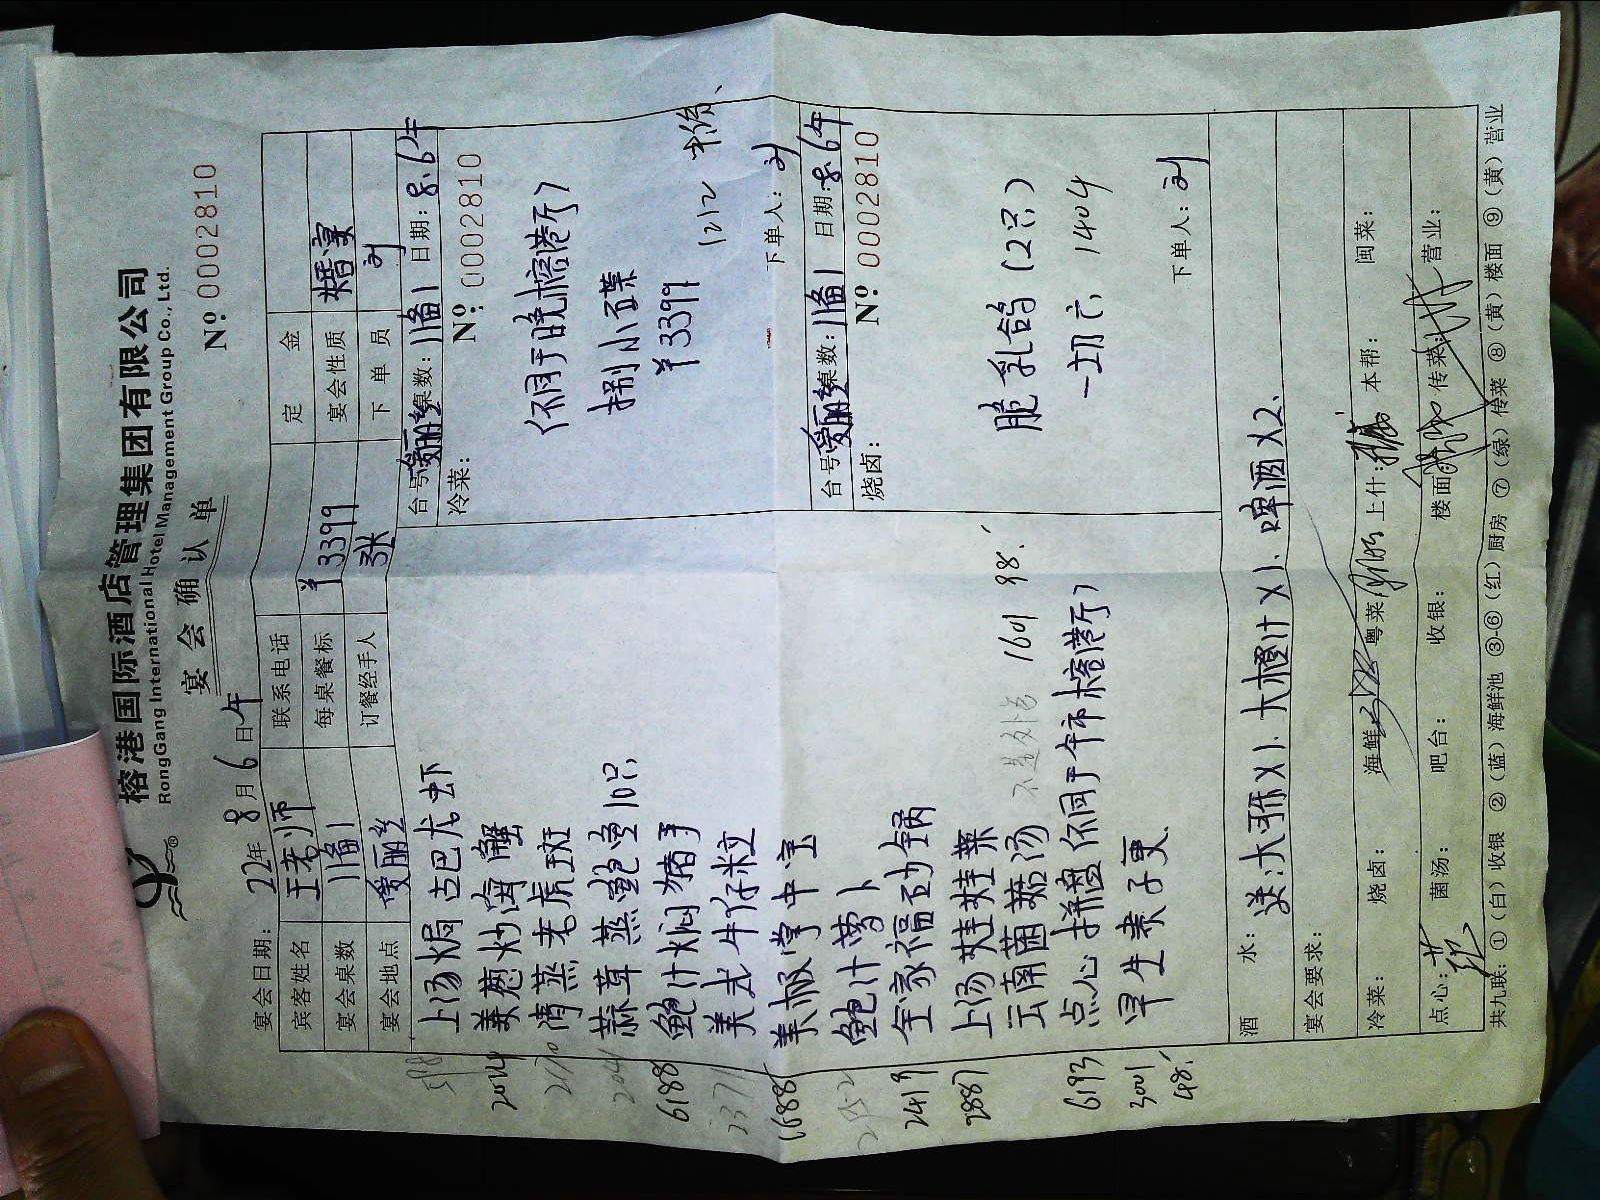 榕港国际酒店管理集团有限公司
RongGang International Hotel Management Group Co., Ltd.
宴会确认单
Nº: 0002810
宴会日期: 22年 8月 6日 午
宾客姓名 王老师 联系电话 定金
宴会桌数 1备1 每桌餐标 ¥3399 宴会性质 婚宴
宴会地点 爱丽 订餐经手人 下单员 刘
上汤焗古巴龙虾
姜葱炒海蟹
清蒸老虎斑
蒜茸蒸鲍鱼10只
鲍汁焖猪手
美式牛仔粒
美极掌中宝
鲍汁萝卜
全家福砂锅
上汤娃娃菜
云南菌菇汤
点心拼盘(不同于午市榕港厅)
早生素子更
2014
6188
2419
2887
6193
3001
48.
1601 98.
台号: 爱丽 桌数: 1备1 日期: 8.6午
冷菜: Nº: 0002810
(不同于晚榕港厅)
捌小碟
¥3399
1212
下单人: 刘
台号: 爱丽 桌数: 1备1 日期: 8.6午
烧卤: Nº 0002810
脆乳鸽(2只)
一切六 1404
下单人: 刘
酒水: 送:大雪X1、大橙汁X1、啤酒X2、
宴会要求:
冷菜: 烧卤: 海鲜 粤菜 上什: 本帮: 闽菜:
点心: 菌汤: 吧台: 收银: 楼面 传菜: 营业:
共九联: ①(白)收银 ②(蓝)海鲜池 ③-⑥(红)厨房 ⑦(绿)传菜 ⑧(黄)楼面 ⑨(黄)营业